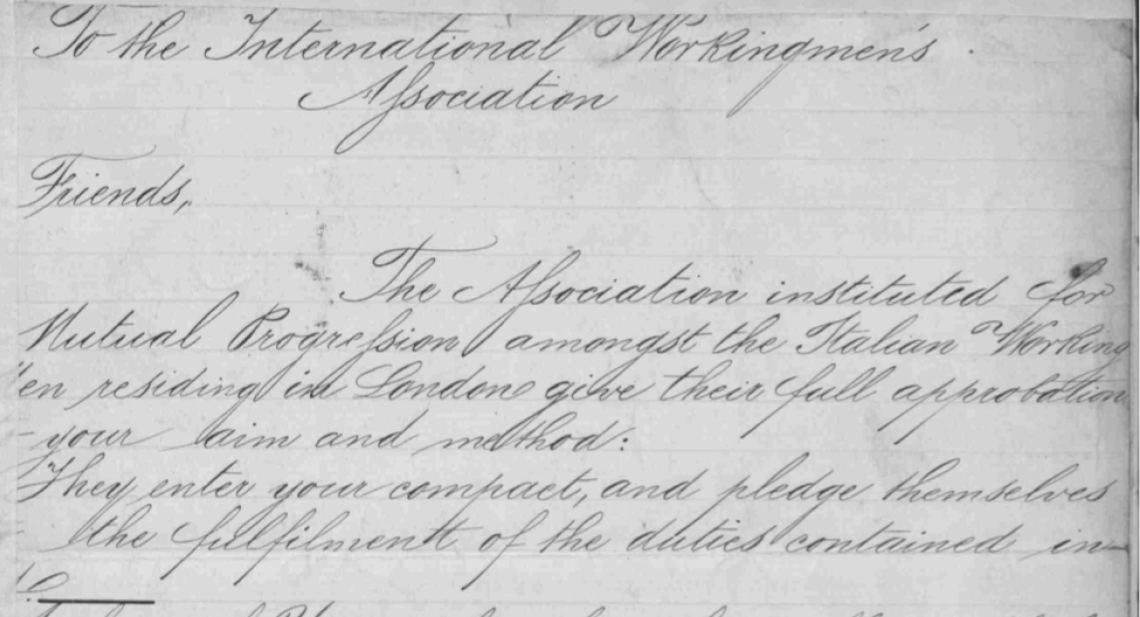 To the International Workingmen's
Association
Friends,
The Association instituted for
Mutual Progression amongst the Italian Working
en residing in London give their full approbation
your aim and method:
They enter your compact, and pledge themselves
the fulfilment of the duties contained in